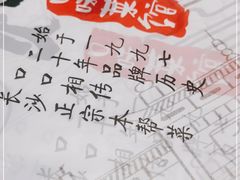 菜馆
始于一九九七
二十年品牌历史
口口相传
长沙正宗本帮菜